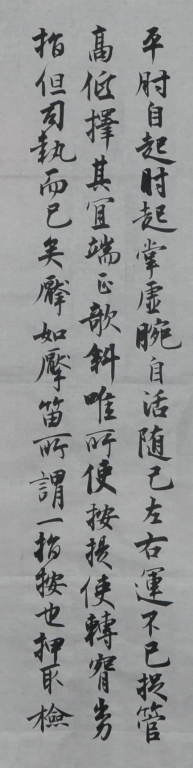 平肘自起肘起掌虚腕自活随己左右運不已捉管
高低擇其宜端正欹斜唯所便按提使轉
指但司執而已矣擫如擫笛所謂一指按也押取檢